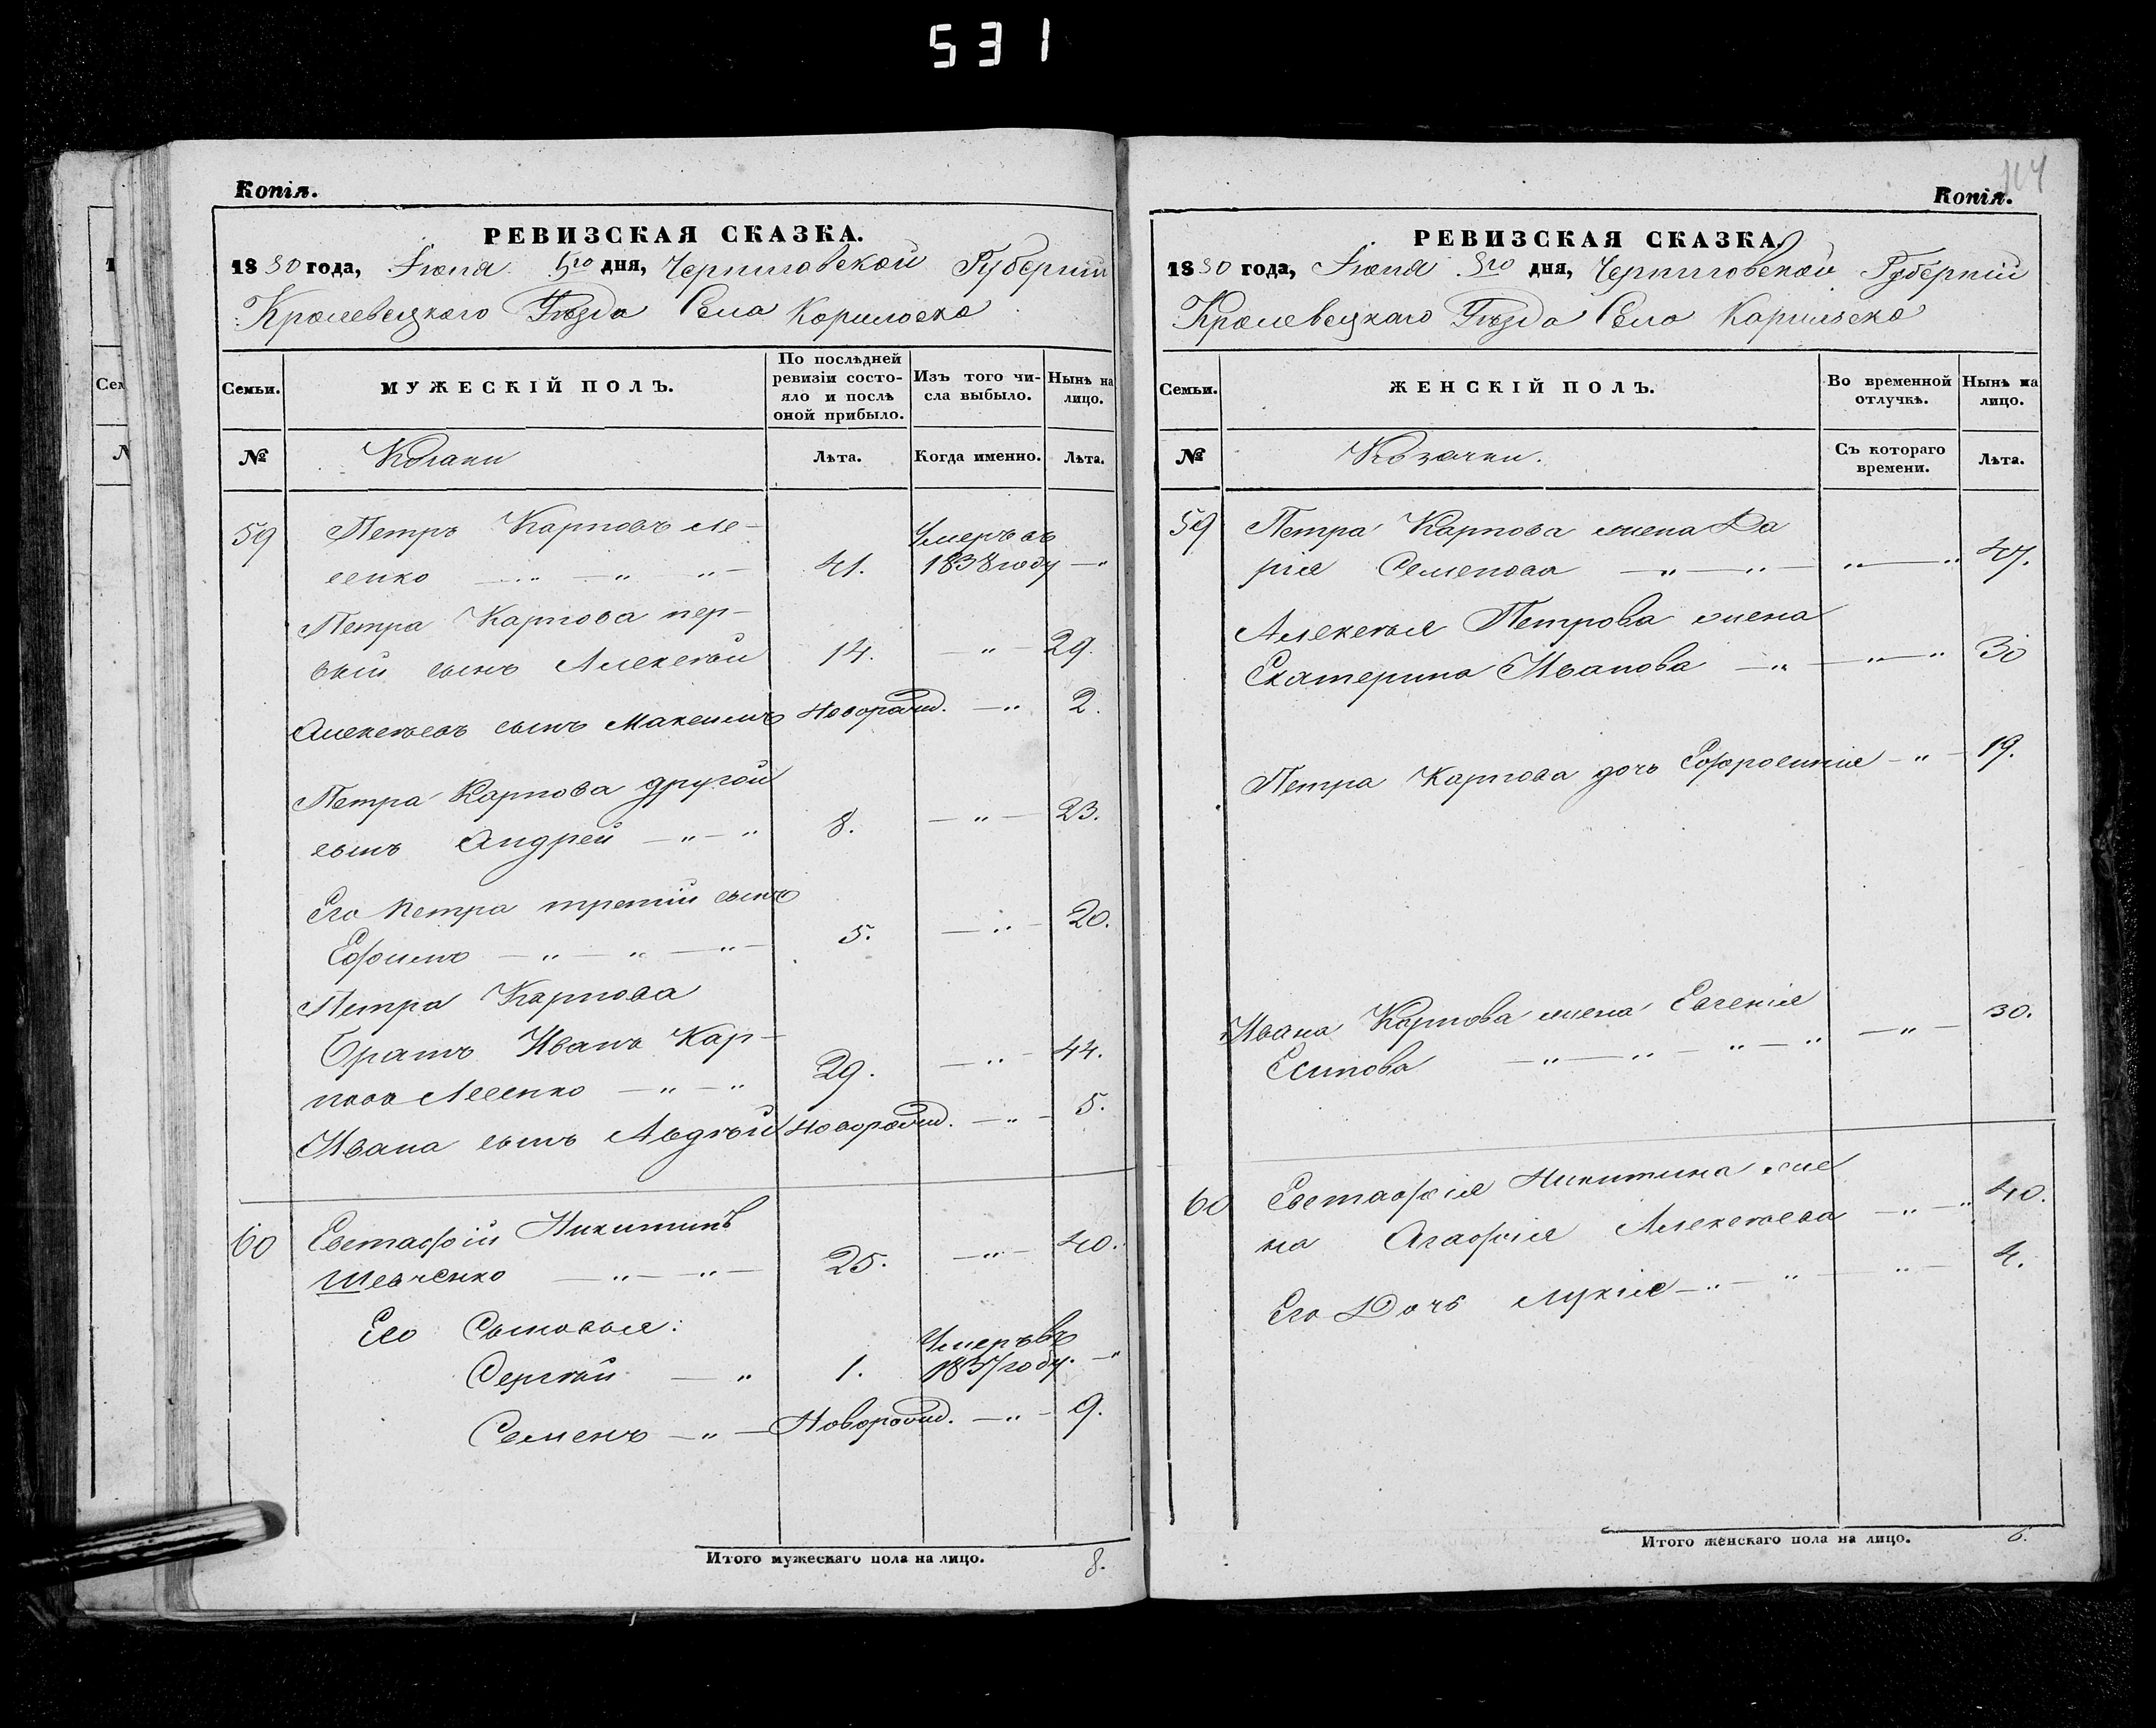 531
Копія.
РЕВИЗСКАЯ СКАЗКА.
1850 года, Іюня 5го дня, Черниговской Губерніи
Кролевецкаго Уѣзда Села
Семьи.
МУЖЕСКІЙ ПОЛЪ.
По послѣдней ревизіи состояло и послѣ оной прибыло.
Изъ того числа выбыло.
Нынѣ на лицо.
№
Козаки
Лѣта.
Когда именно.
Лѣта.
59 Петръ Карповъ Ле-
сенко — „ — „ „ — 41. Умеръ въ 1838 году — „
Петра Карпова пер-
вый сынъ Алексѣй 14. — „ — 29.
Алексѣевъ сынъ Максимъ Новорожд. — „ 2.
Петра Карпова другой
сынъ Андрей — „ — „ 8. — „ — 23.
Его Петра третій сынъ
Ефимъ — „ — „ — „ — 5. — „ — 20.
Петра Карпова
братъ Иванъ Кар-
повъ Лесенко — „ — „ 29. — „ — 44.
Ивана сынъ Авдѣй Новорожд. — „ — 5.
60 Евстафій Никитинъ
Шевченко — „ — „ — 25. — „ — 40.
Его Сыновья:
Сергѣй — „ 1. Умеръ въ 1837 году. — „
Семенъ — „ — Новорожд. — „ — 9.
Итого мужескаго пола на лицо. 8.
114
Копія.
РЕВИЗСКАЯ СКАЗКА.
1850 года, Іюня 5го дня, Черниговской Губерніи
Кролевецкаго Уѣзда Села
Семьи.
ЖЕНСКІЙ ПОЛЪ.
Во временной отлучкѣ.
Нынѣ на лицо.
№
Козачки.
Съ котораго времени.
Лѣта.
59 Петра Карпова жена Да
рія Семенова — „ — „ — „ — „ 47.
Алексѣя Петрова жена
Екатерина Иванова — „ — „ — „ 30
Петра Карпова дочь Ефросинія — „ — 19.
Ивана Карпова жена Евгенія
Есипова — „ — „ — „ — „ — „ — 30.
60 Евстафія Никитина же
на Агафія Алексѣева — „ — „ 40.
Его Дочь Лукія — „ — „ — „ — 4.
Итого женскаго пола на лицо. 6.